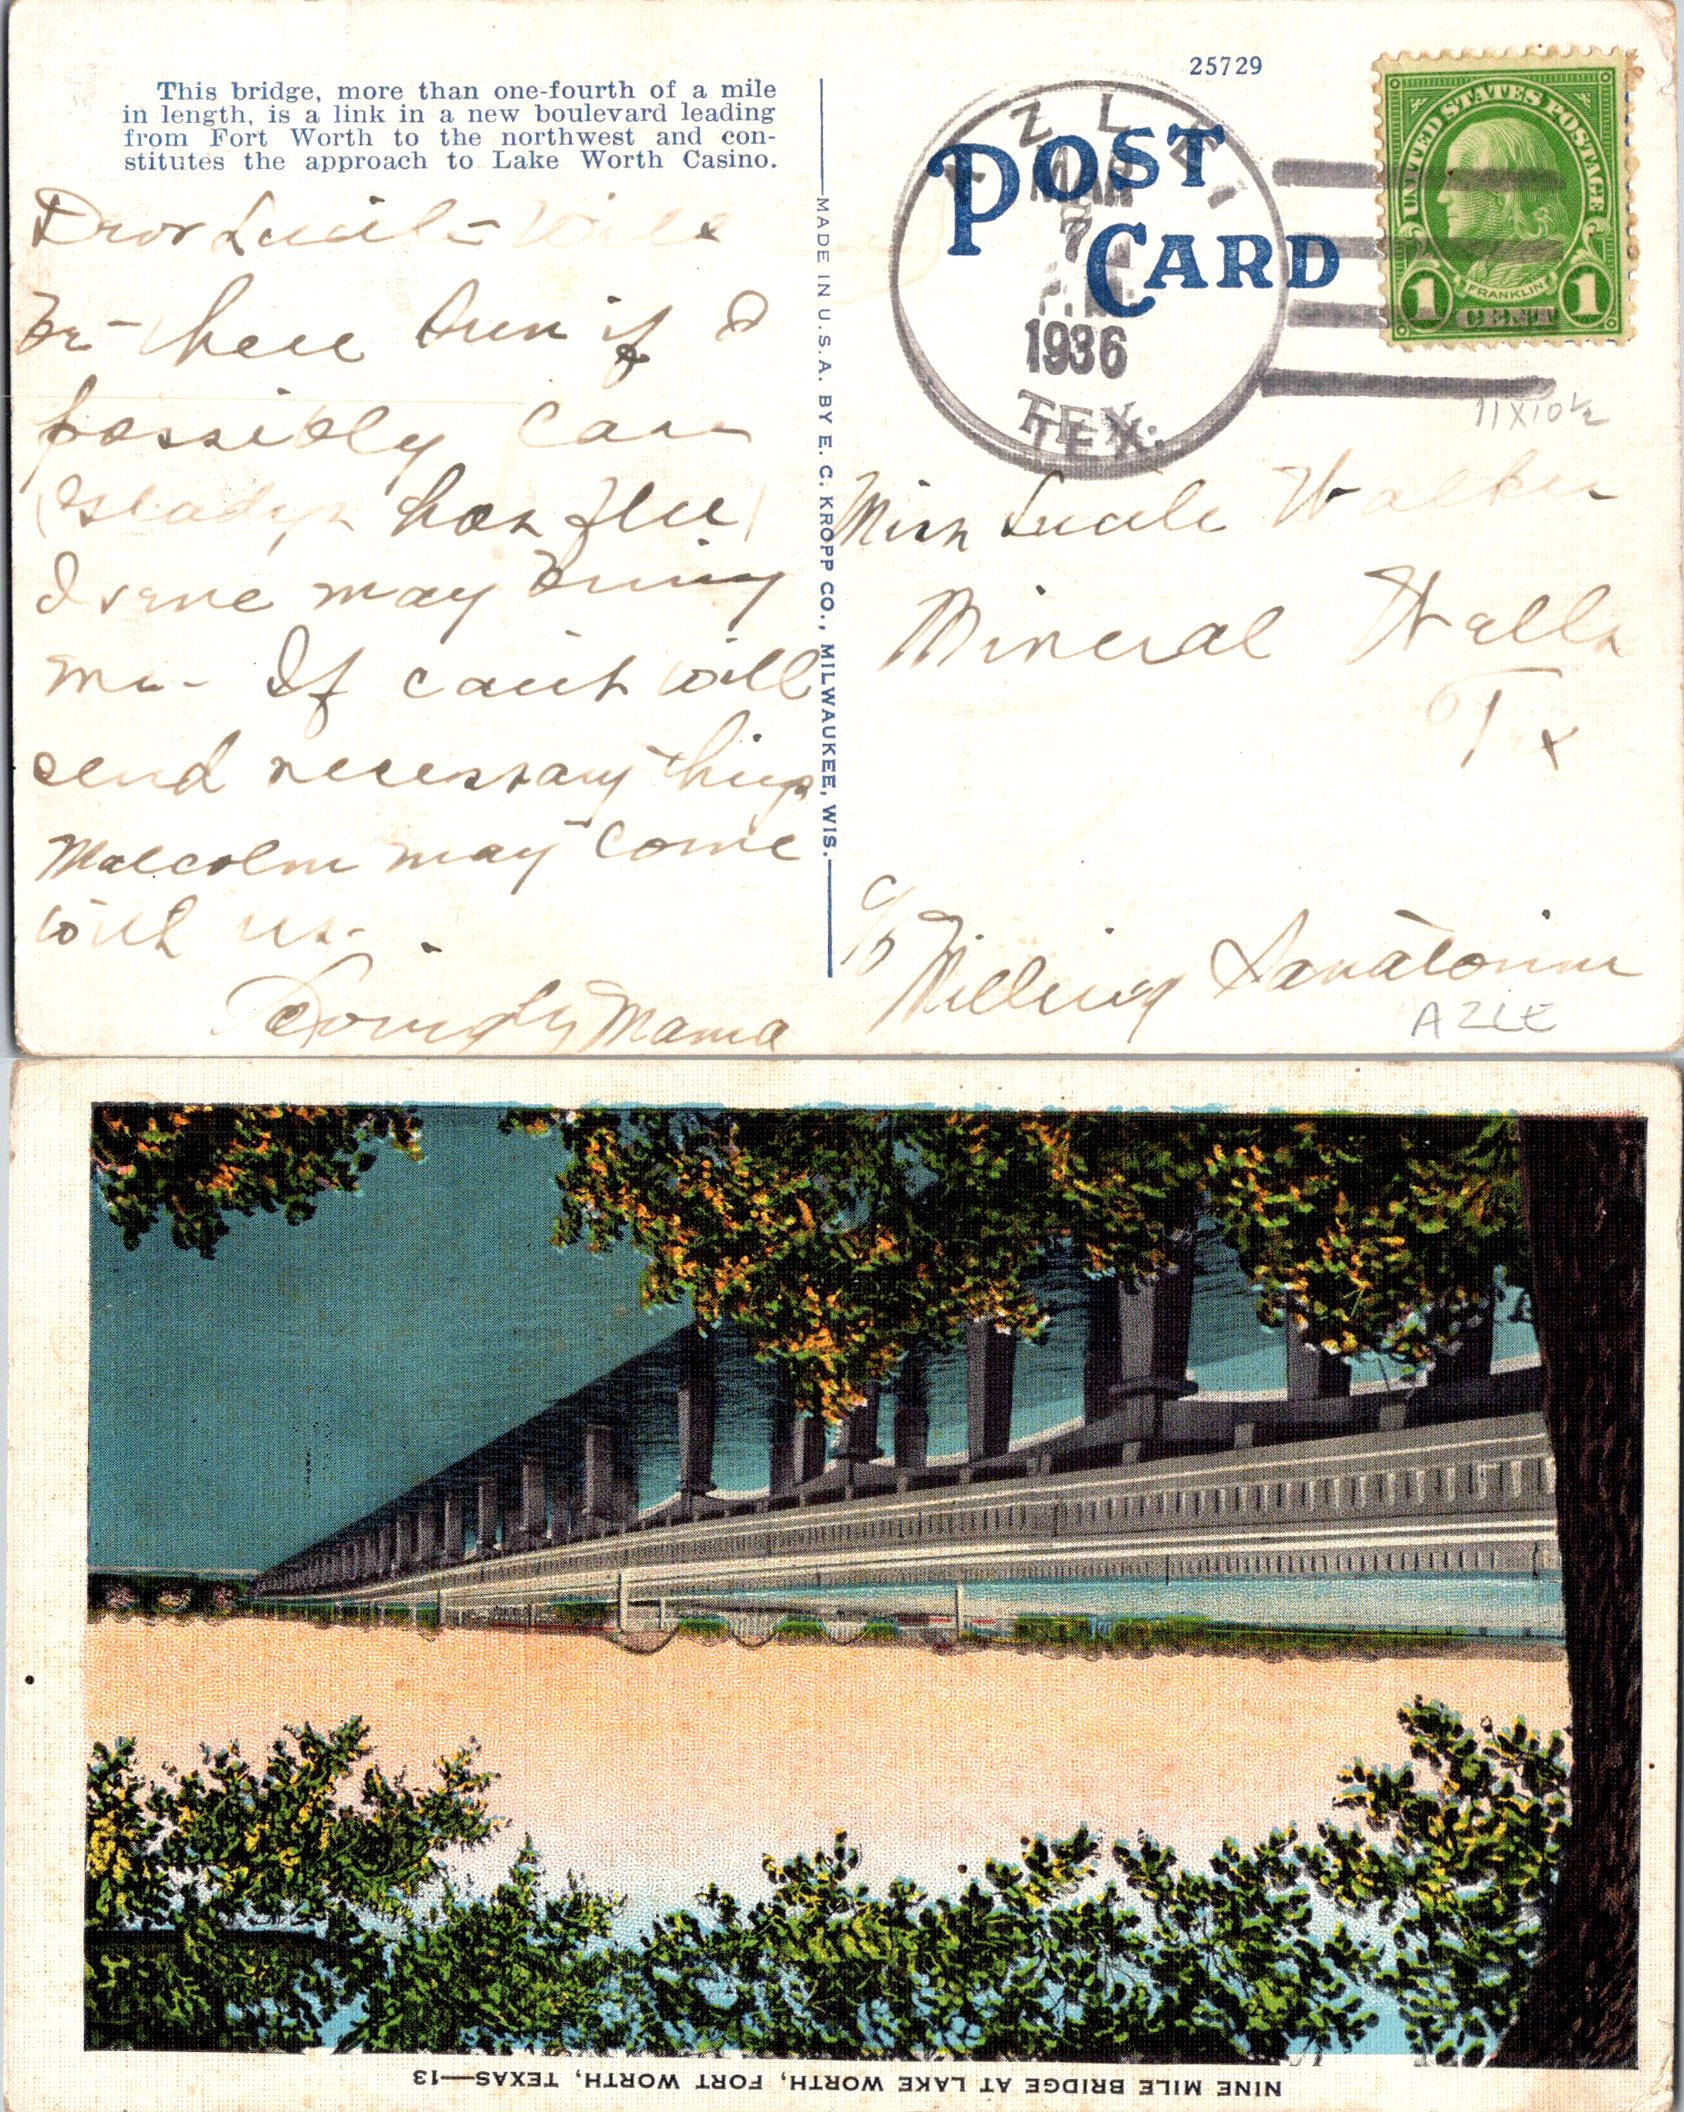 This bridge, more than one-fourth of a mile
in length, is a link in a new boulevard leading
from Fort Worth to the northwest and con-
stitutes the approach to Lake Worth Casino.
Dear Lucile - Will
be - here Sun if I
possibly can
(Gladys has flu)
Irene may bring
me - If can't will
send necessary things
Malcolm may come
with us.
Mama
MADE IN U.S.A. BY E. C. KROPP CO., MILWAUKEE, WIS.
25729
POST
CARD
AZLE
MAR
7
P.M.
1936
TEX.
UNITED STATES POSTAGE
FRANKLIN
1 CENT 1
11X10½
Miss Lucile Walker
Mineral Wells
Tex
c/o Milling Sanatorium
AZLE
NINE MILE BRIDGE AT LAKE WORTH, FORT WORTH, TEXAS—13